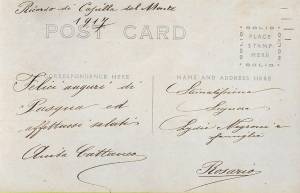 Ricordo di Capilla del Monte
1917
POST CARD
SOLIO
PLACE
STAMP
HERE
SOLIO
CORRESPONDENCE HERE
Felici auguri di
Pasqua ed
affettuosi saluti
Anita Cattaneo
NAME AND ADDRESS HERE
Signora
e
famiglia
Rosario